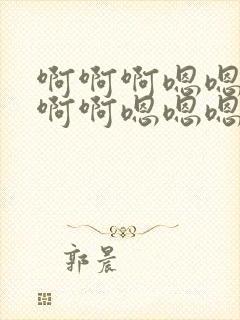 啊啊啊嗯嗯
啊啊嗯嗯嗯
郭晨